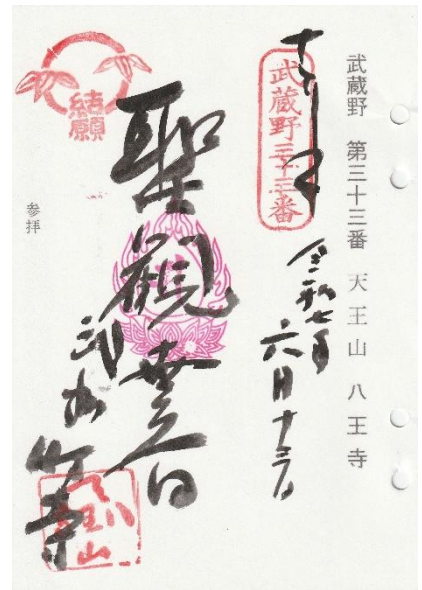 武蔵野 第三十三番 天王山 八王寺
奉拝
武蔵野三十三番
令和七年
六月十三日
聖観世音
武州
竹寺
結願
参拝